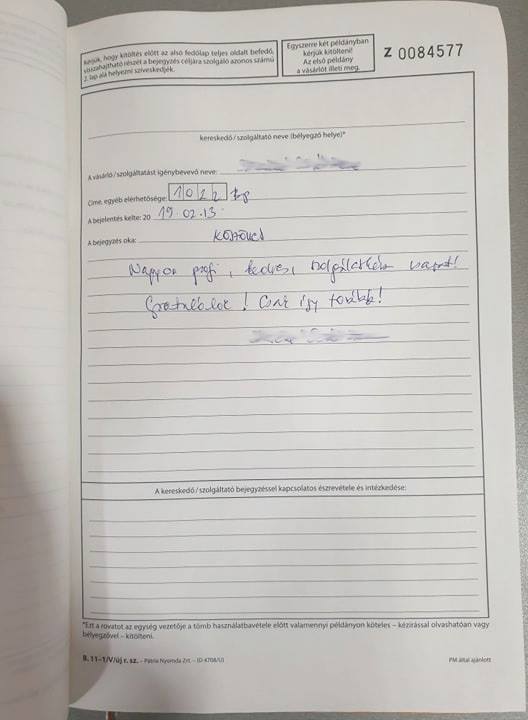 Kérjük, hogy kitöltés előtt az alsó fedőlap teljes oldalt befedő,
visszahajtható részét a bejegyzés céljára szolgáló azonos számú
2. lap alá helyezni szíveskedjék.
Egyszerre két példányban
kérjük kitölteni!
Az első példány
a vásárlót illeti meg.
Z 0084577
kereskedő/szolgáltató neve (bélyegző helye)*
A vásárló/szolgáltatást igénybevevő neve:
Címe, egyéb elérhetősége: 1022 Bp
A bejelentés kelte: 20 19.02.13.
A bejegyzés oka: KÖSZÖNET
Nagyon profi, kedves,
Gratulálok! Csak így tovább!
A kereskedő/szolgáltató bejegyzéssel kapcsolatos észrevétele és intézkedése:
*Ezt a rovatot az egység vezetője a tömb használatbavétele előtt valamennyi példányon köteles – kézírással olvashatóan vagy
bélyegzővel – kitölteni.
B. 11–1/V/új r. sz. – Pátria Nyomda Zrt. – (D 4708/U)
PM által ajánlott